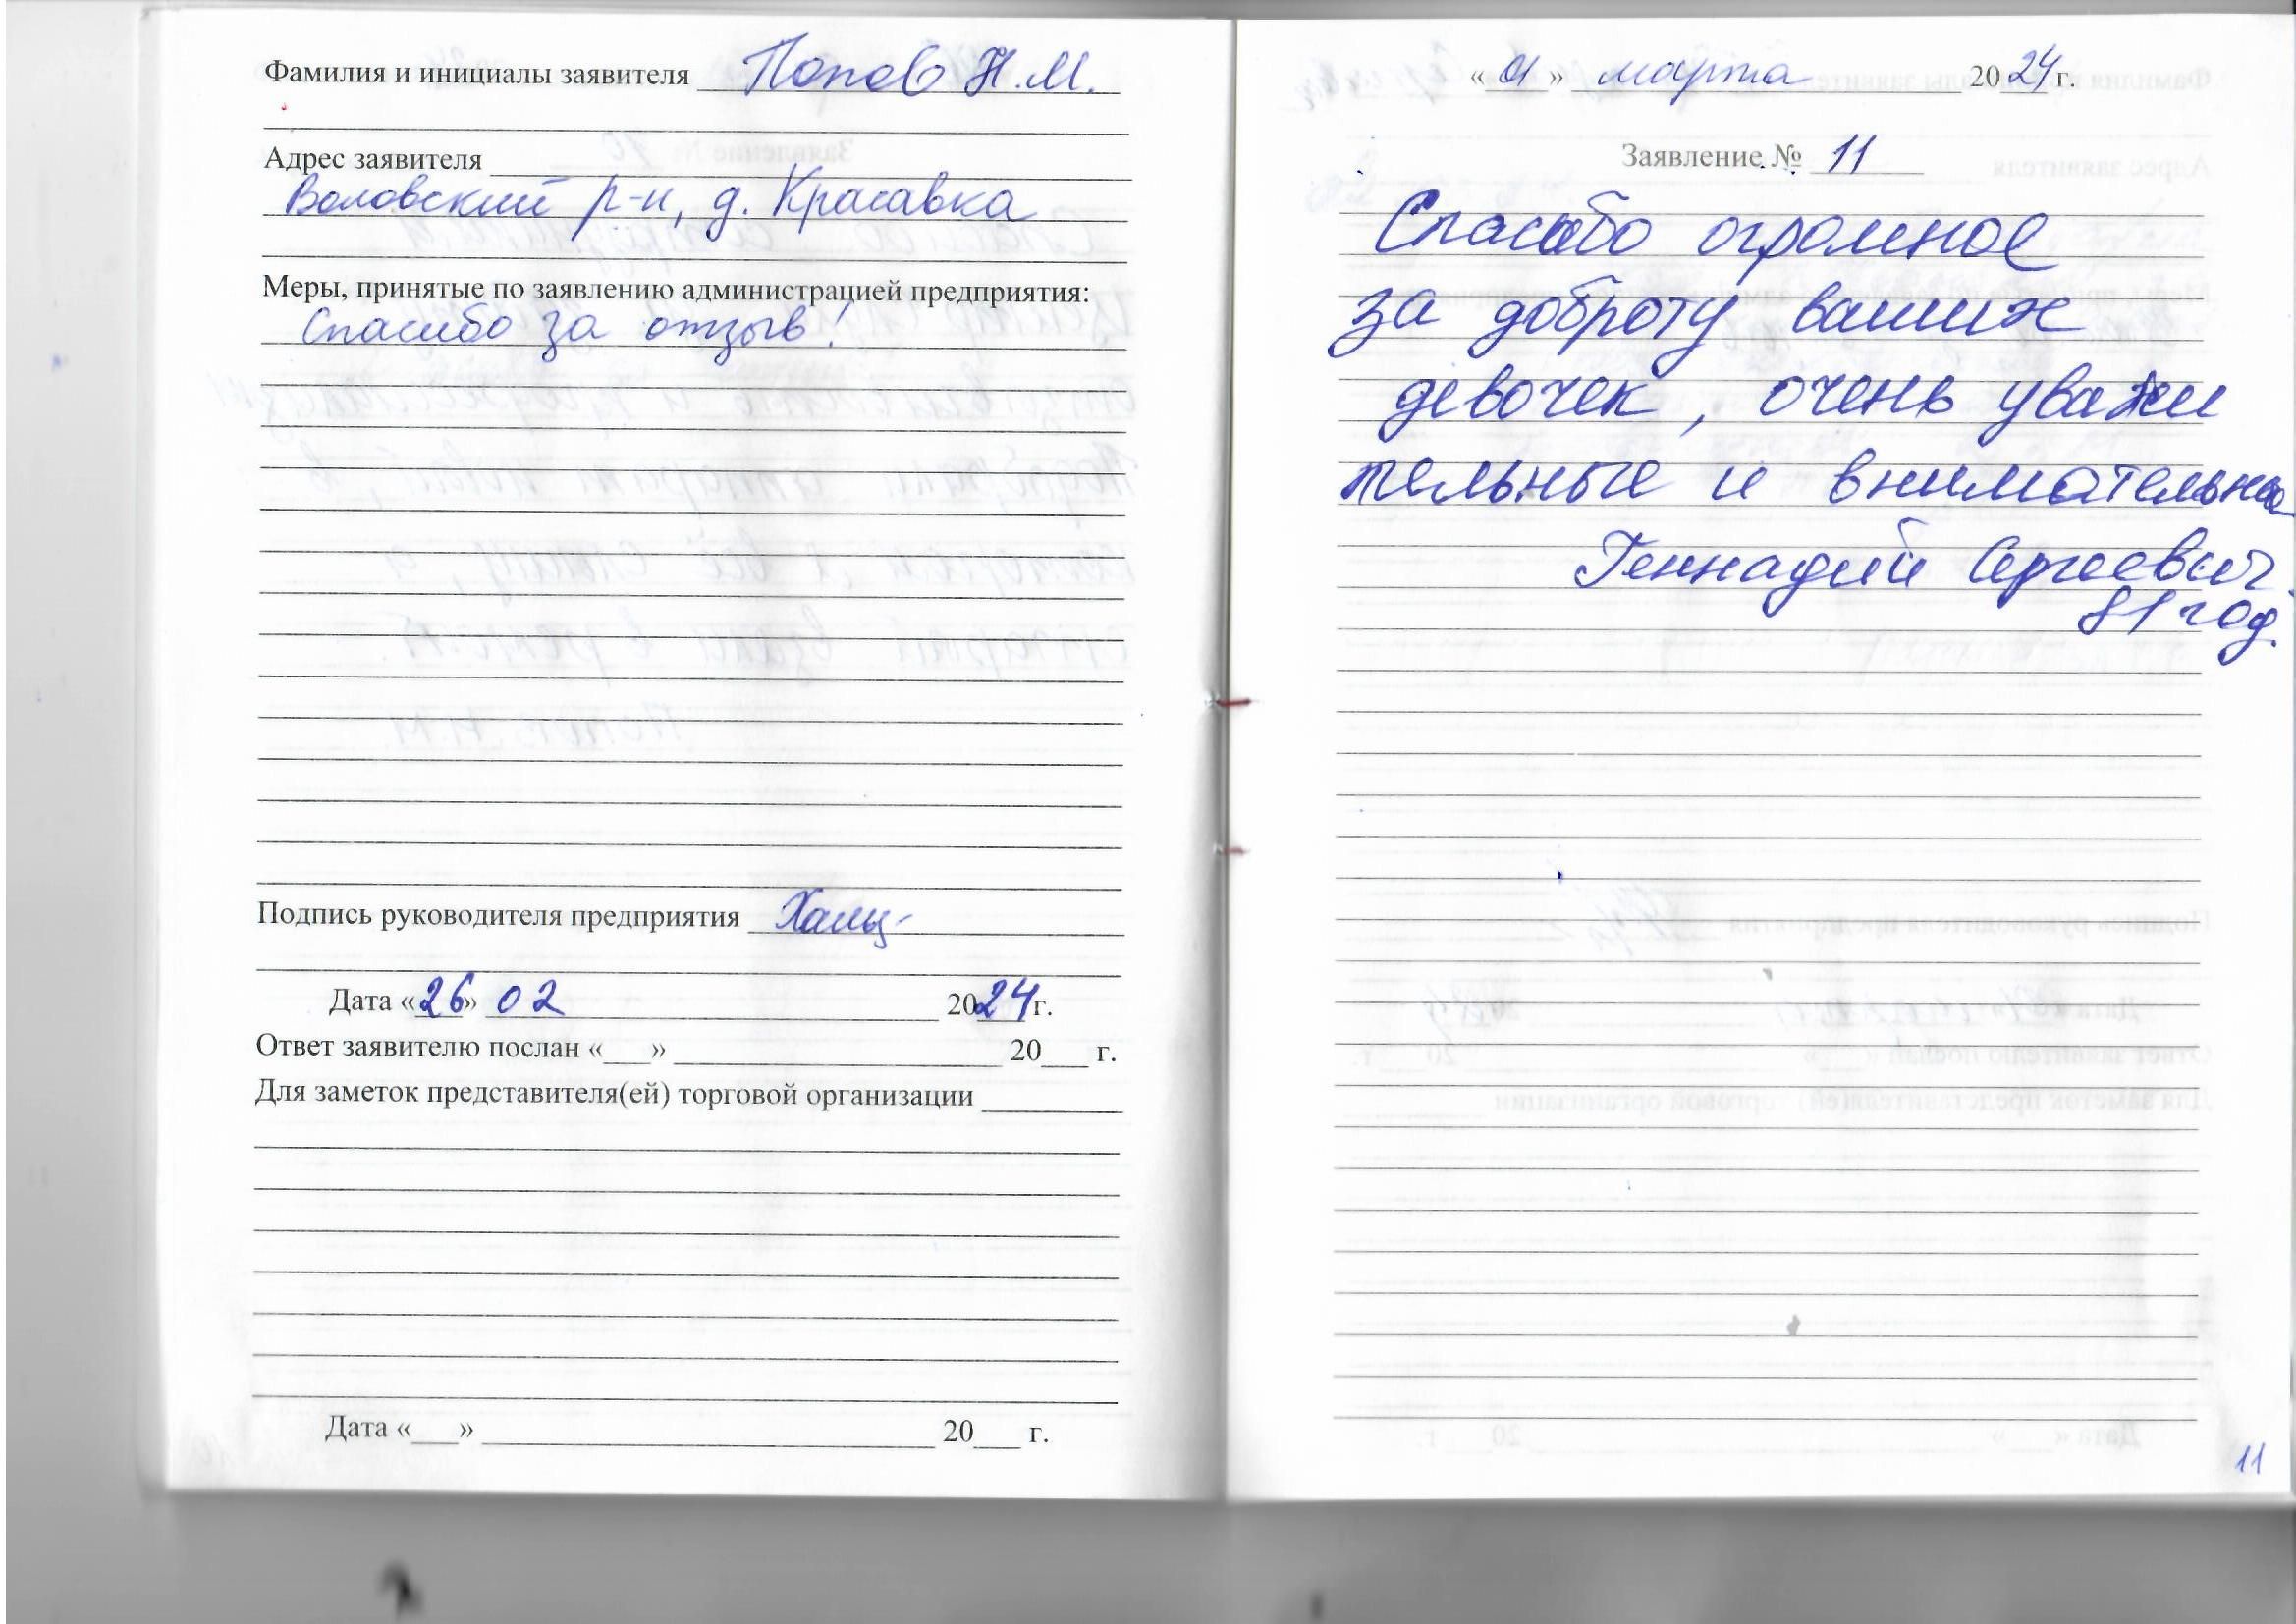 Фамилия и инициалы заявителя Попов Н.М.
Адрес заявителя
Воловский р-н, д. Красавка
Меры, принятые по заявлению администрацией предприятия:
Спасибо за отзыв!
Подпись руководителя предприятия
Дата «26» 02 2024 г.
Ответ заявителю послан «___» ______ 20___ г.
Для заметок представителя(ей) торговой организации
Дата «___» ______ 20___ г.
«01» марта 2024 г.
Заявление № 11
Спасибо огромное
за доброту ваших
девочек, очень уважи
тельные и внимательные
Геннадий Сергеевич
81 год.
11